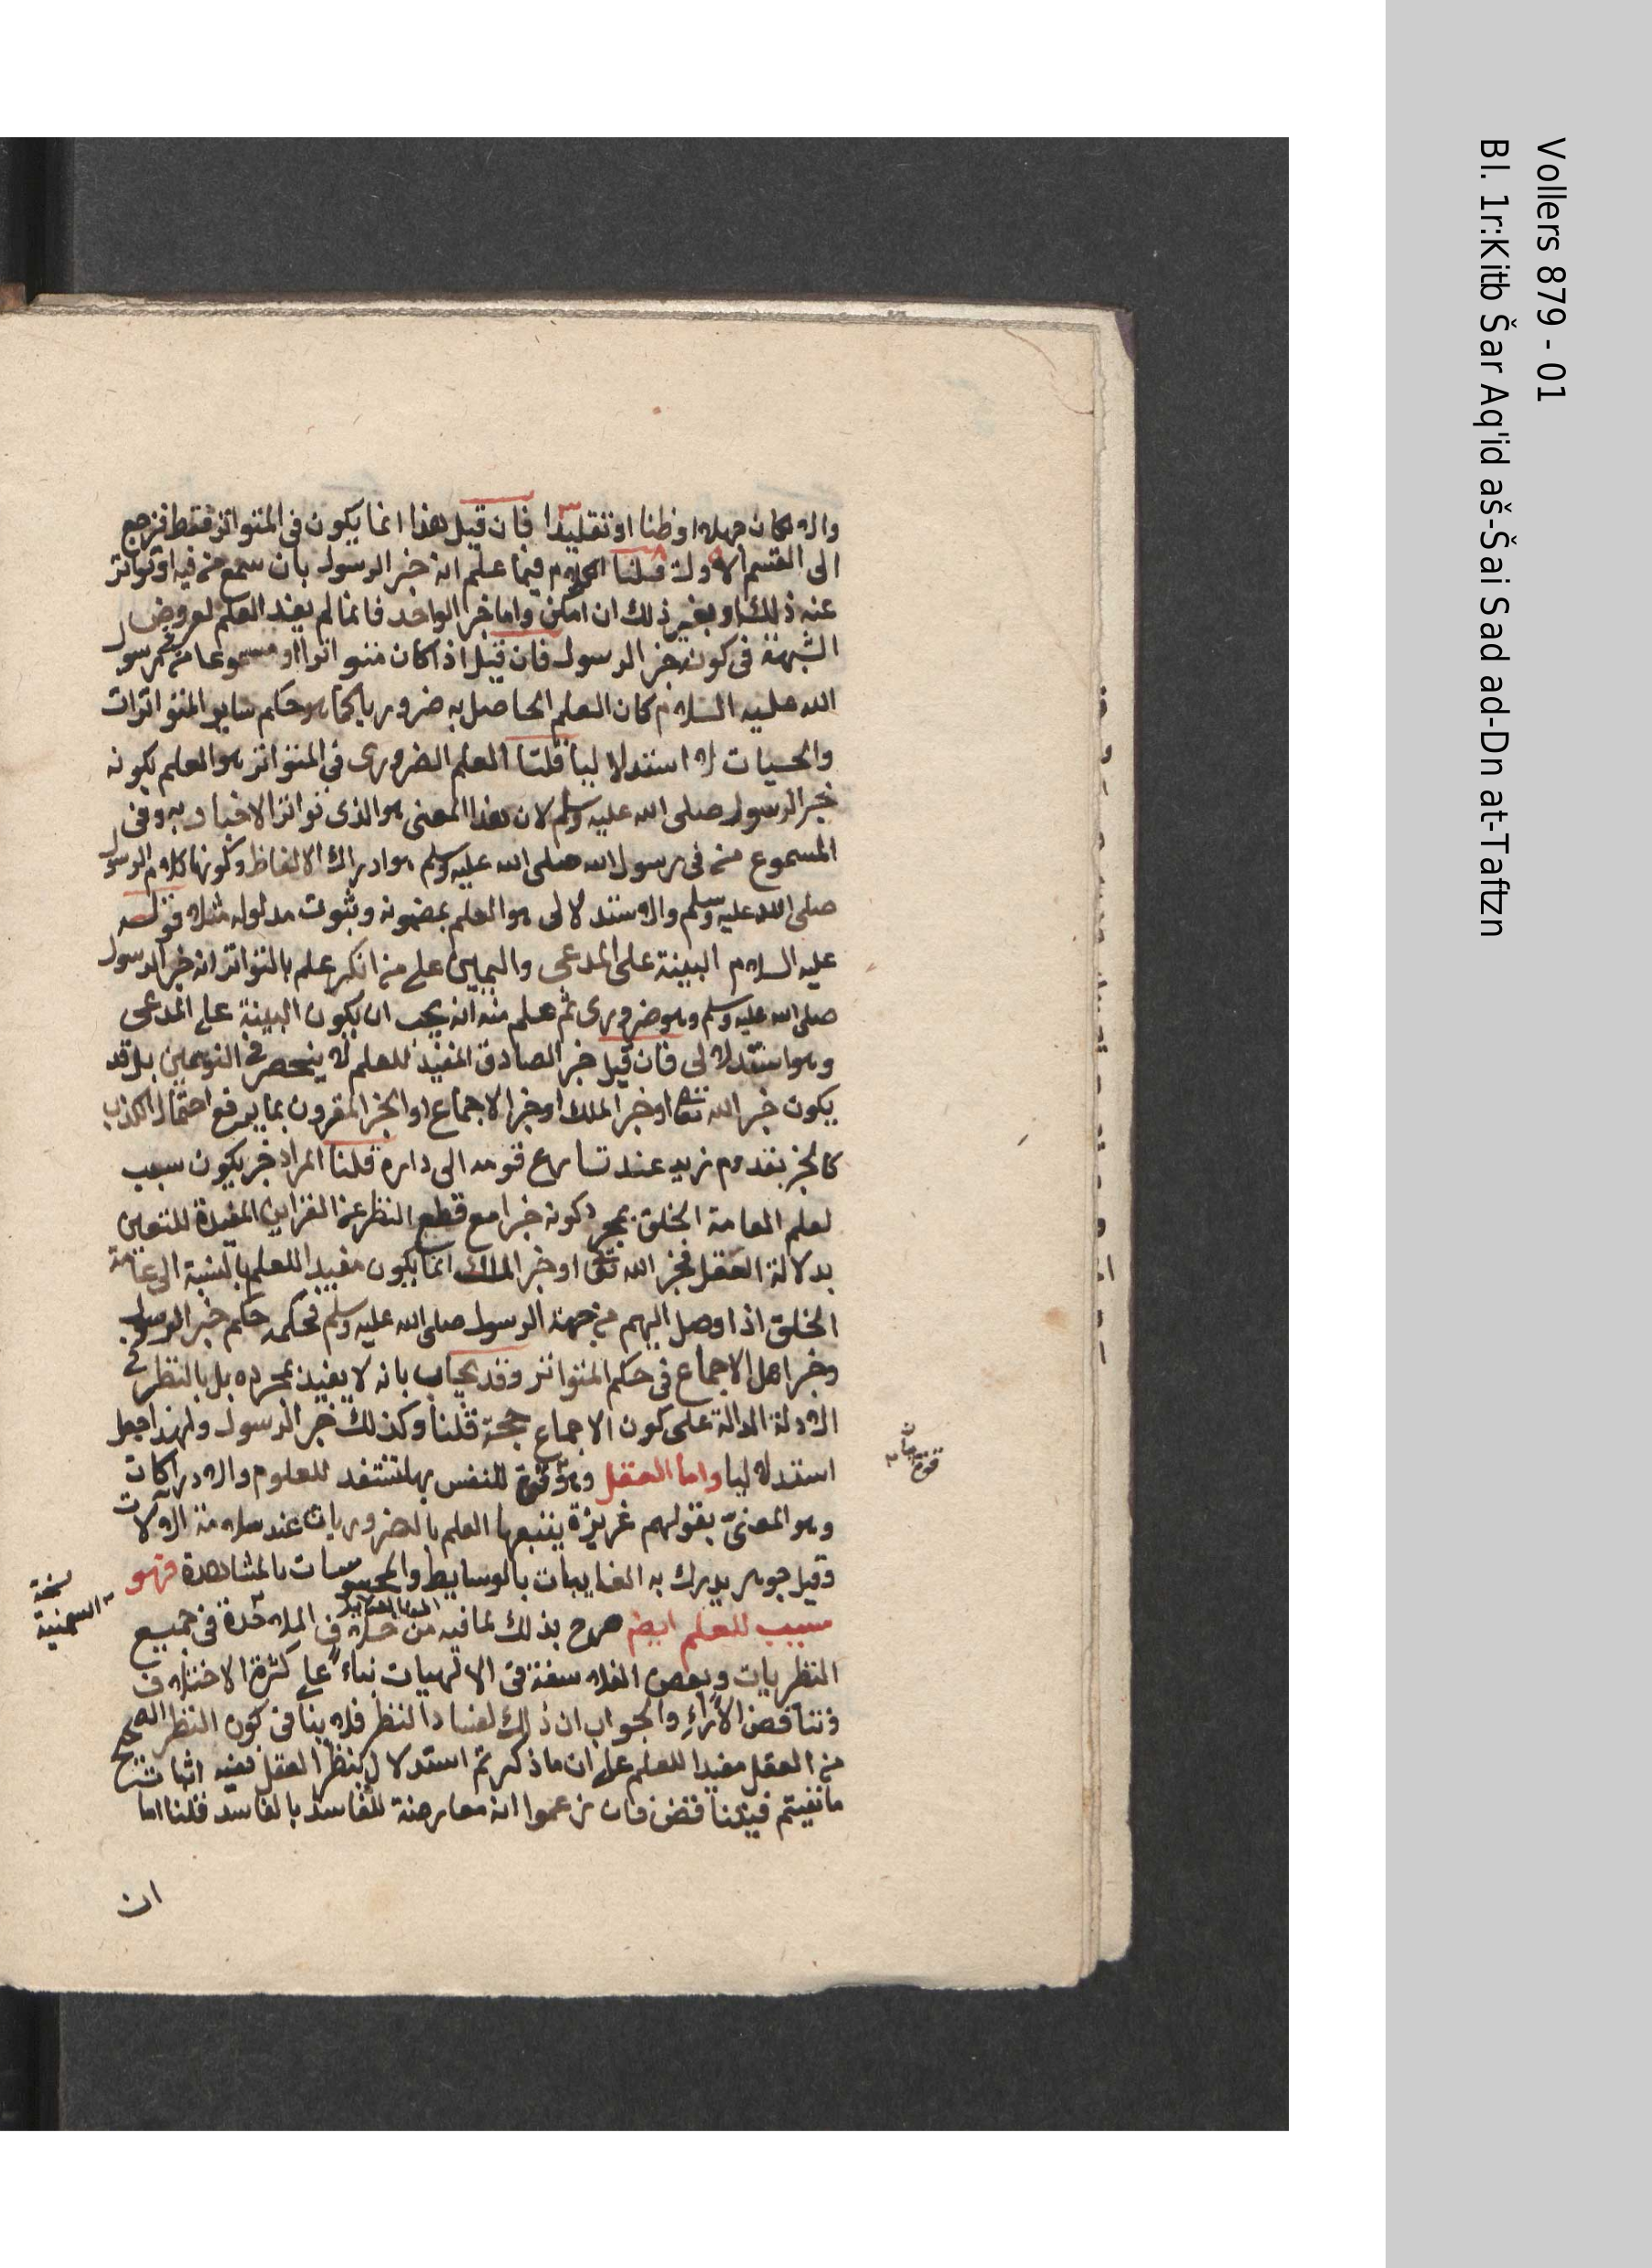 والا لكان جهلا او ظنا او تقليدا فان قيل هذا انما يكون فى المتواتر فقط فيرجع
الى القسم الاول قلنا الكلام فيما علم انه خبر الرسول بان سمع من فيه او تواتر
عنه ذلك او بغير ذلك ان امكن واما خبر الواحد فانما لم يفد العلم لعروض
الشبهة فى كونه خبر الرسول فان قيل اذا كان متواترا او مسموعا من فى رسول
الله عليه السلام كان العلم الحاصل به ضروريا كما هو حكم ساير المتواترات
والحسيات لا استدلاليا قلنا العلم الضرورى فى المتواتر هو العلم بكونه
خبر الرسول صلى الله عليه وسلم لان هذا المعنى هو الذى تواتر الاخبار به وفى
المسموع من فى رسول الله صلى الله عليه وسلم هو ادراك الالفاظ وكونها كلام الرسول
صلى الله عليه وسلم والاستدلالى هو العلم بمضمونه وثبوت مدلوله مثلا قوله
عليه السلام البينة على المدعى واليمين على من انكر علم بالتواتر انه خبر الرسول
صلى الله عليه وسلم وهو ضرورى ثم علم منه انه يجب ان يكون البينة على المدعى
وهو استدلالى فان قيل خبر الصادق المفيد للعلم لا ينحصر فى النوعين بل قد
يكون خبر الله تعا او خبر الملك او خبر الاجماع او الخبر المقرون بما يرفع احتمال الكذب
كالخبر بقدوم زيد عند تسارع قومه الى داره قلنا المراد خبر يكون سبب
لعلم العامة الخلق بمجرد كونه خبرا مع قطع النظر عن القراين المفيدة لليقين
بدلالة العقل فخبر الله تعا او خبر الملك انما يكون مفيدا للعلم بالنسبة الى عامة
الخلق اذا وصل اليهم من جهة الرسول صلى الله عليه وسلم فحكمه حكم خبر الرسول
وخبر اهل الاجماع فى حكم المتواتر وقد يجاب بانه لا يفيد بمجرده بل بالنظر فى
الادلة الدالة على كون الاجماع حجة قلنا وكذلك خبر الرسول ولهذا جعل
استدلاليا واما العقل وهو قوة للنفس بها تستعد للعلوم والادراكات
وهو المعنى بقولهم غريزة يتبعها العلم بالضروريات عند سلامة الالات
وقيل جوهر يدرك به الغايبات بالوسايط والمحسوسات بالمشاهدة فهو
سبب للعلم ايض صرح بذلك لما فيه من خلاف الملاحدة فى جميع
نسخة
السمنية
النظريات وبعض الفلاسفة فى الالهيات بناء على كثرة الاختلاف
وتناقض الآراء والجواب ان ذلك لفساد النظر فلا ينافى كون النظر الصحيح
من العقل مفيدا للعلم على ان ما ذكرتم استدلال بنظر العقل ففيه اثبات
ما نفيتم فيتناقض فان زعموا انه معارضة للفاسد بالفاسد قلنا اما
ان
Vollers 879 - 01
Bl. 1r:Kitb Šar Aq'id aš-Šai Sad ad-Dn at-Taftzn